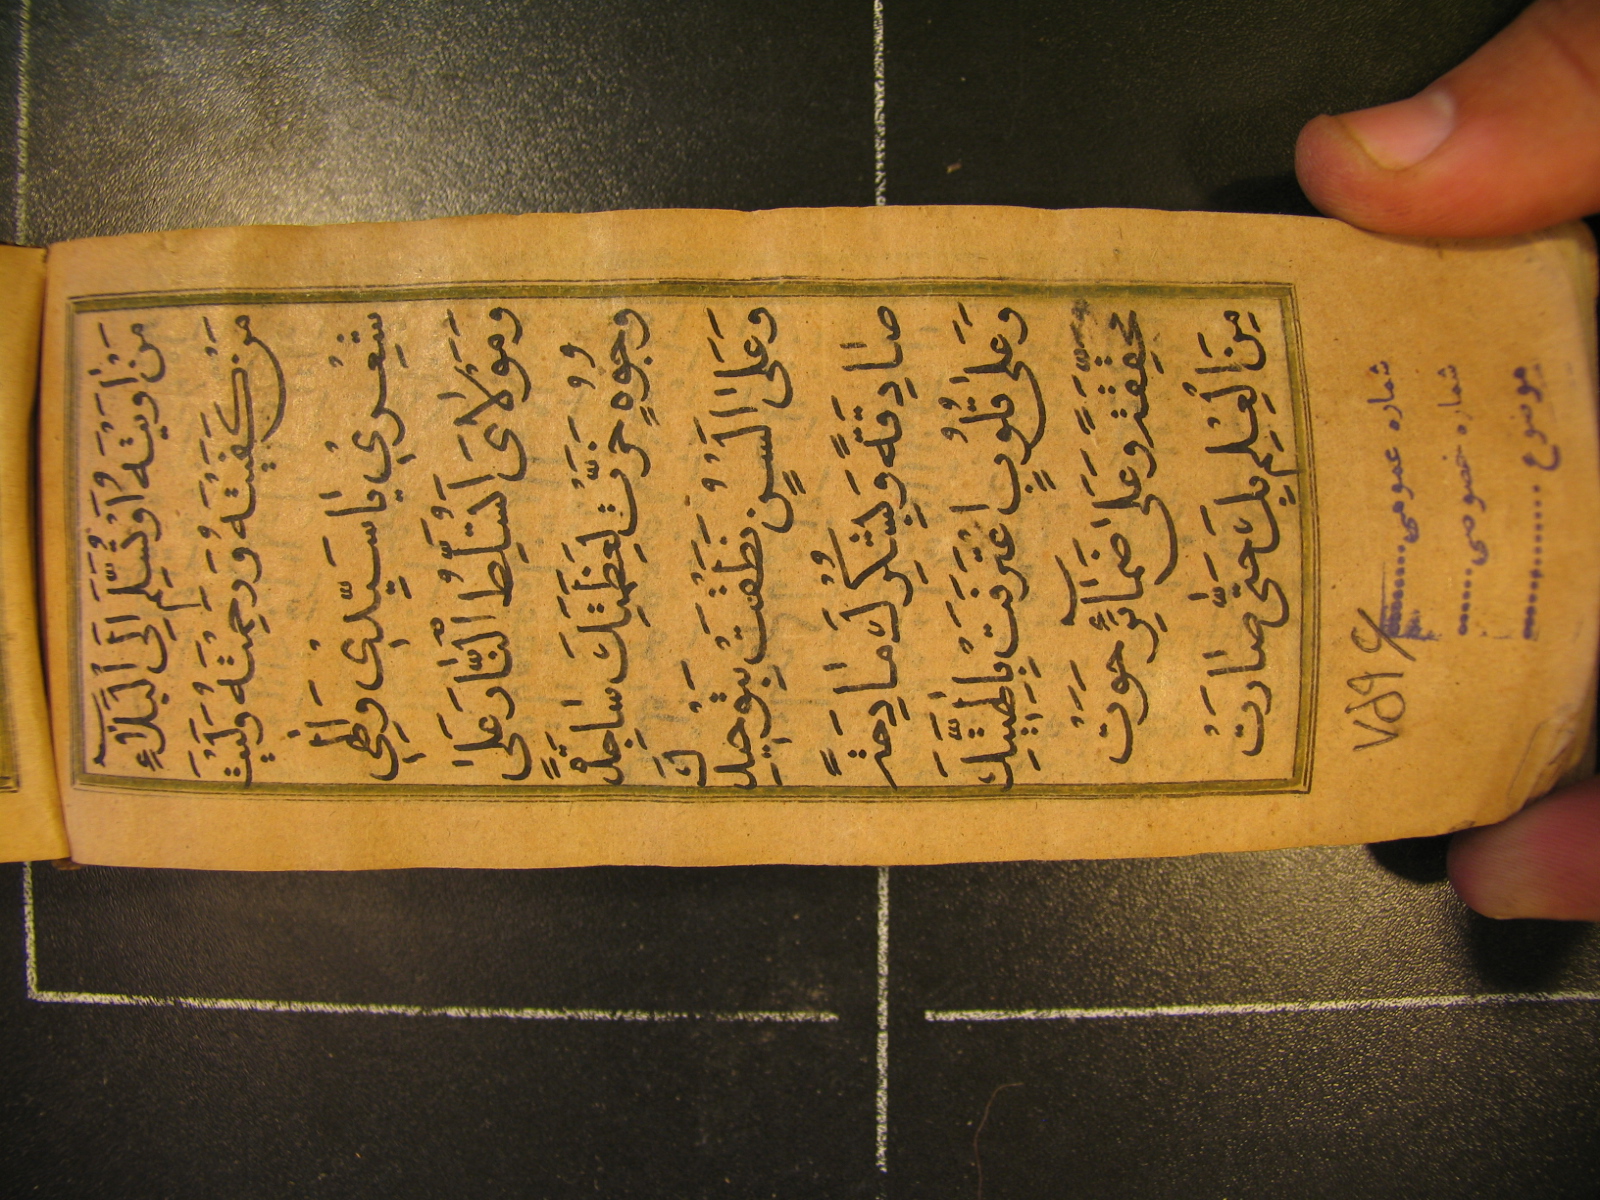 مَنْ اٰوَيْتَهُ اَوْ تُسَلِّمَ اِلَى الْبَلَآءِ
مَنْ كَفَيْتَهُ وَرَحِمْتَهُ وَلَيْتَ
شِعْرِي يَا سَيِّدِي وَاِلٰهِي
وَمَوْلَايَ اَتُسَلِّطُ النَّارَ عَلىٰ
وُجُوهٍ خَرَّتْ لِعَظَمَتِكَ سَاجِدَةً
وَعَلىٰ اَلْسُنٍ نَطَقَتْ بِتَوْحِيدِكَ
صَادِقَةً وَبِشُكْرِكَ مَادِحَةً
وَعَلىٰ قُلُوبٍ اعْتَرَفَتْ بِاِلٰهِيَّتِكَ
مُحَقِّقَةً وَعَلىٰ ضَمَآئِرَ حَوَتْ
مِنَ الْعِلْمِ بِكَ حَتّٰى صَارَتْ
شماره عمومى
شماره خصوصى
موضوع